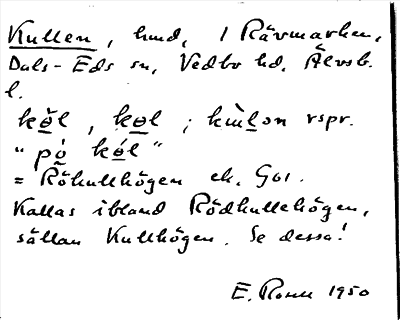 Kullen, hmd, i Rävmarken,
Dals-Eds sn, Vedbo hd, Älvsb.
l.
kö̀l, kol; kùlən rspr.
"pò kól"
= Rökullhögen ek. Go1.
Kallas ibland Rödkullehögen,
sällan Kullhögen. Se dessa!
E. Rosell 1950